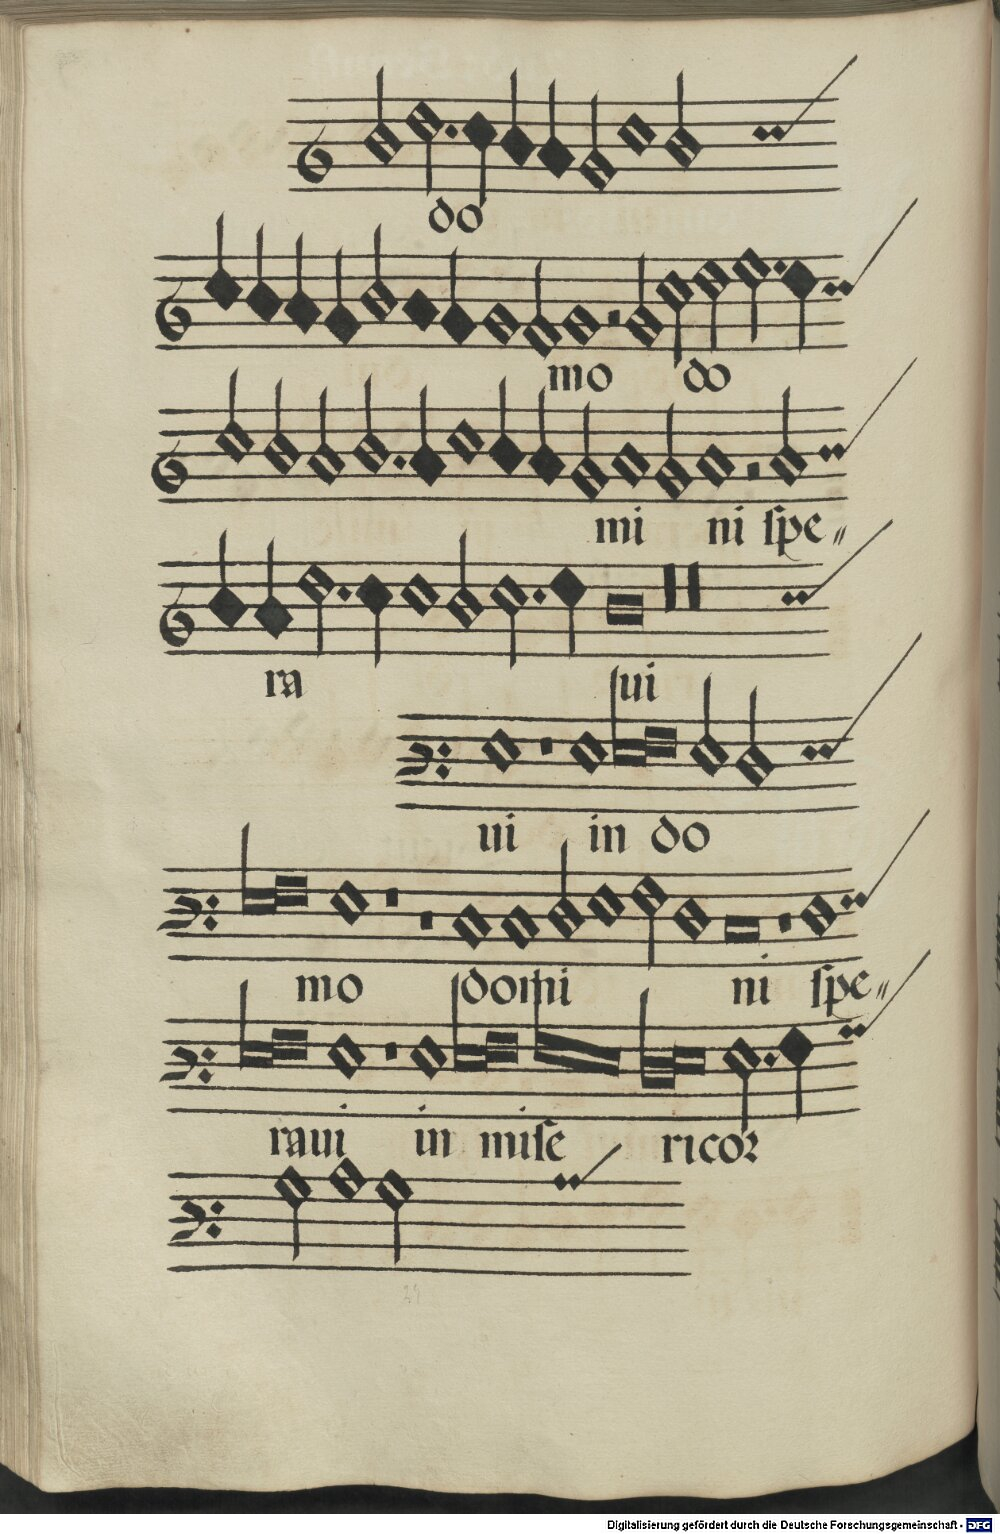 do
mo do
mi ni spe〃
ra ui
ui in do
mo domi ni spe〃
raui in mise ricor
29
Digitalisierung gefördert durch die Deutsche Forschungsgemeinschaft - DFG